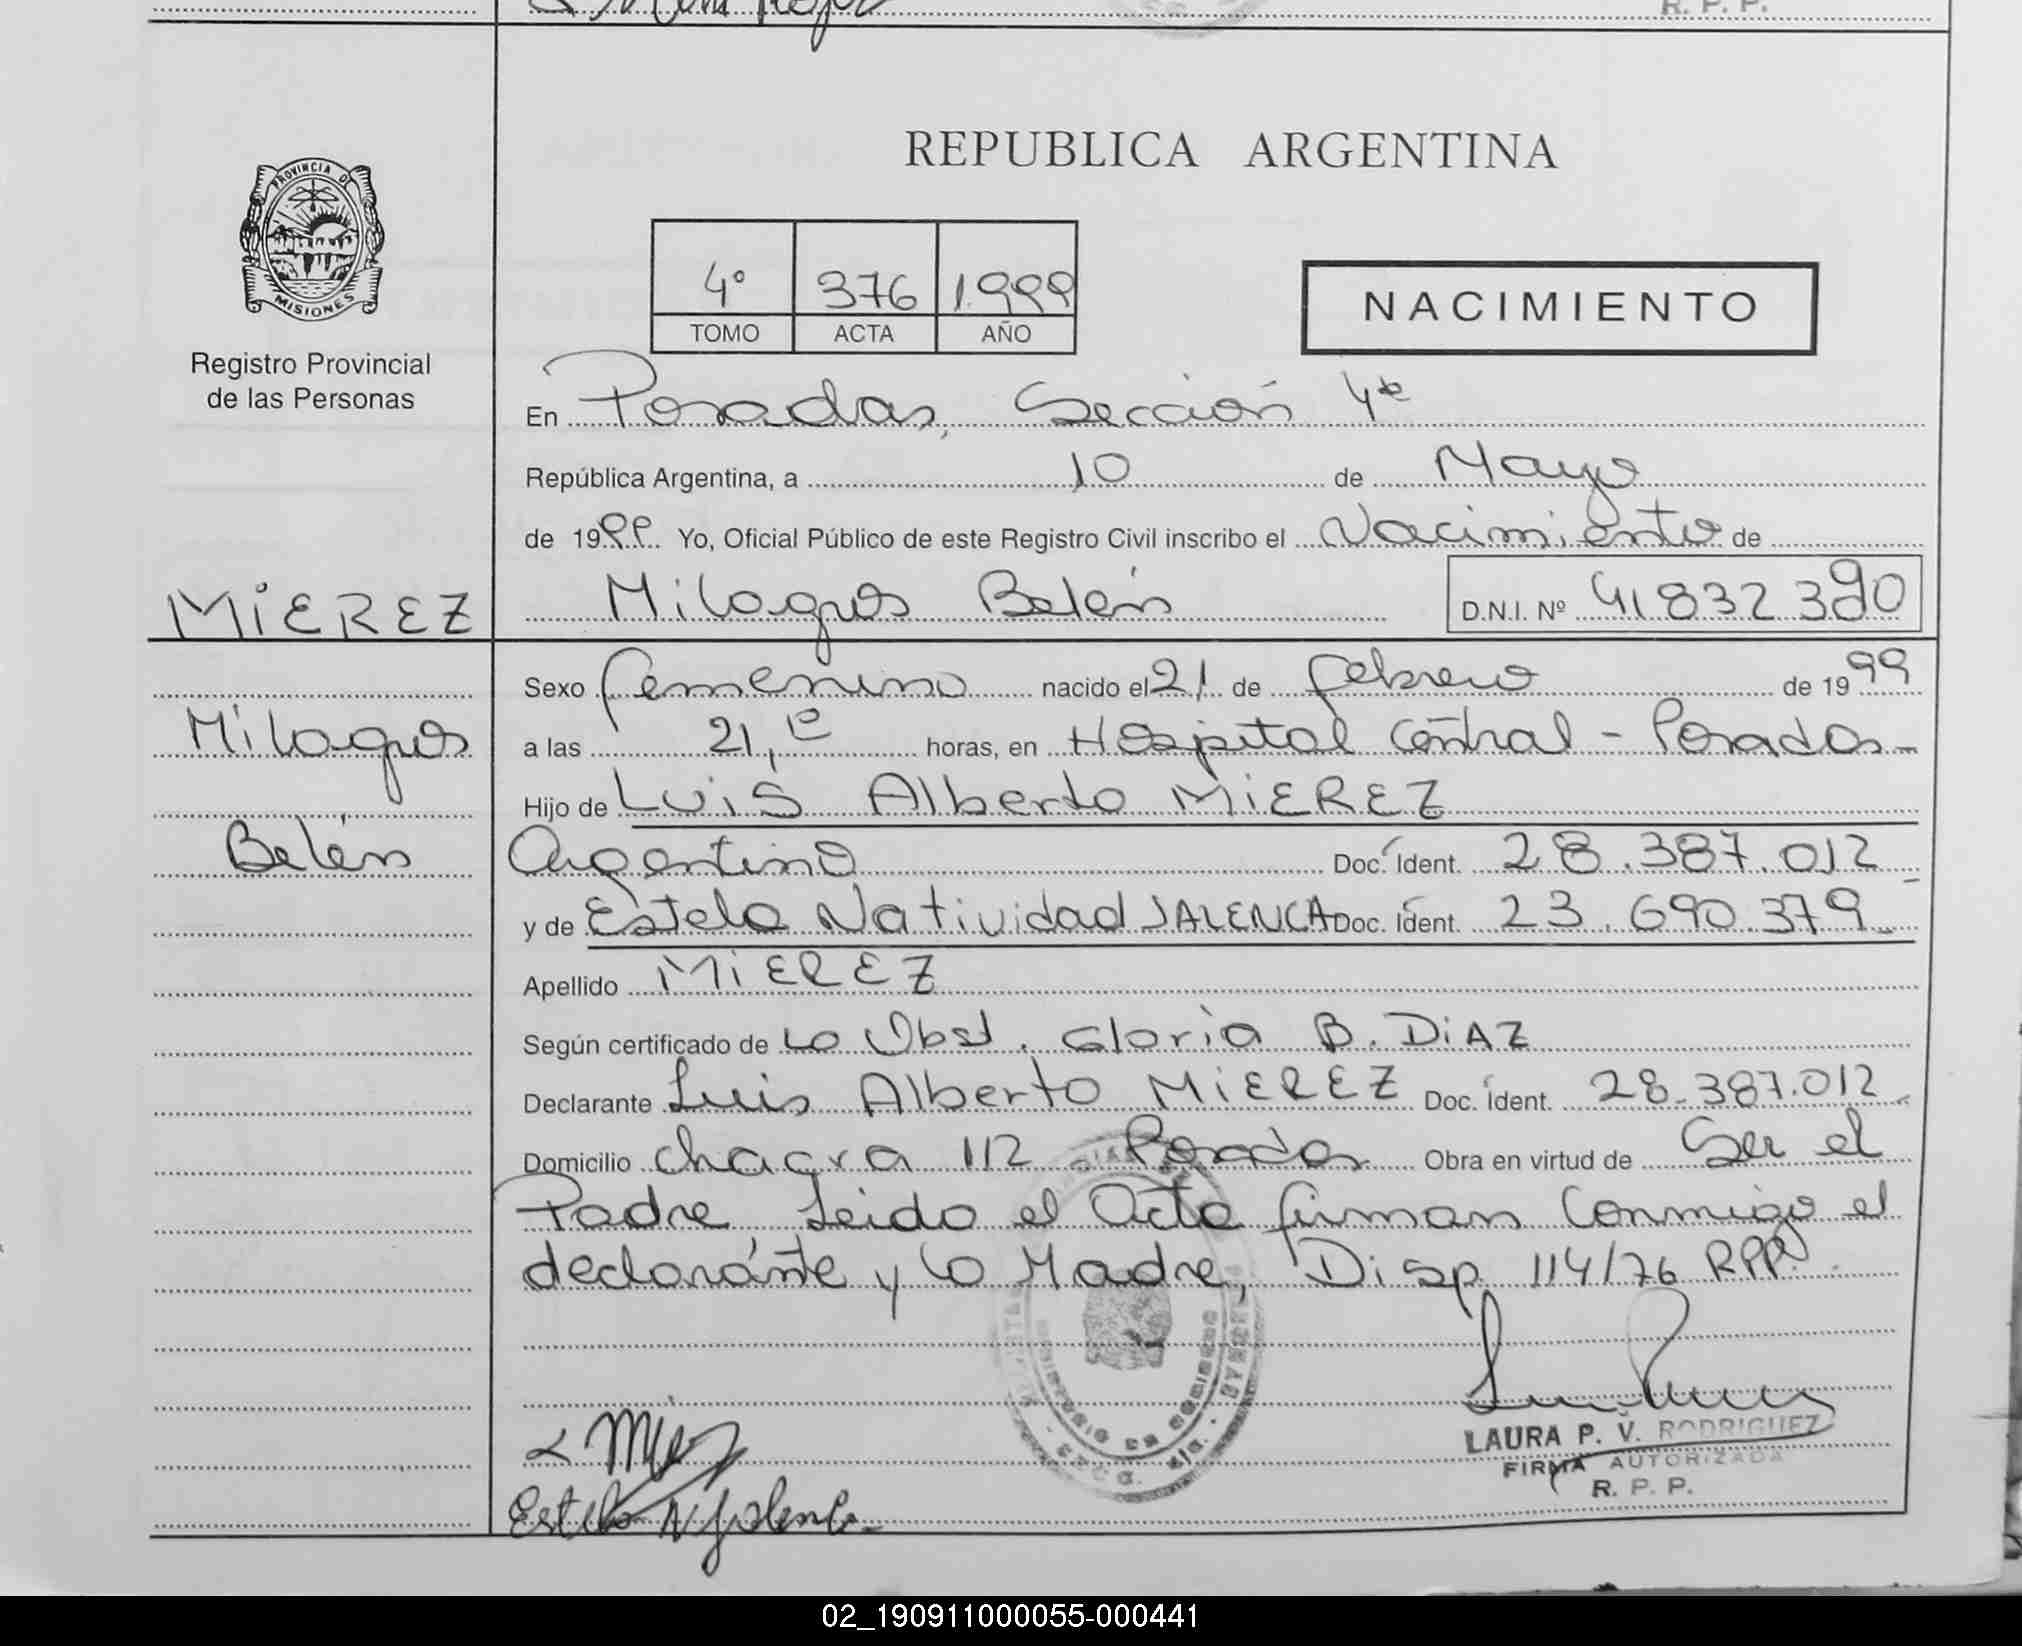 R. P. P.
PROVINCIA DE
MISIONES
Registro Provincial
de las Personas
REPUBLICA ARGENTINA
4º 376 1.999
TOMO ACTA AÑO
NACIMIENTO
En Posadas, Sección 4ta
República Argentina, a 10 de Mayo
de 1999 Yo, Oficial Público de este Registro Civil inscribo el Nacimiento de
MiEREZ Milagros Belén D.N.I. Nº 41.832.390
Sexo femenino nacido el 21 de febrero de 1999
Milagros a las 21, horas, en Hospital Central - Posadas -
Hijo de Luis Alberto MiEREZ
Belén Argentino Doc. Ident. 28.387.012
y de Estela Natividad JALENCA Doc. Ident. 23.690.379
Apellido MiEREZ
Según certificado de La Obst. Gloria B. DiAZ
Declarante Luis Alberto MiEREZ Doc. Ident. 28.387.012
Domicilio chacra 112 Posadas Obra en virtud de Ser el
Padre Leido el Acta firman Conmigo el
declaránte y la Madre, Disp 114/76 RPP.
LAURA P. V. RODRIGUEZ
FIRMA AUTORIZADA
R. P. P.
Estela N Jalenca
02_190911000055-000441